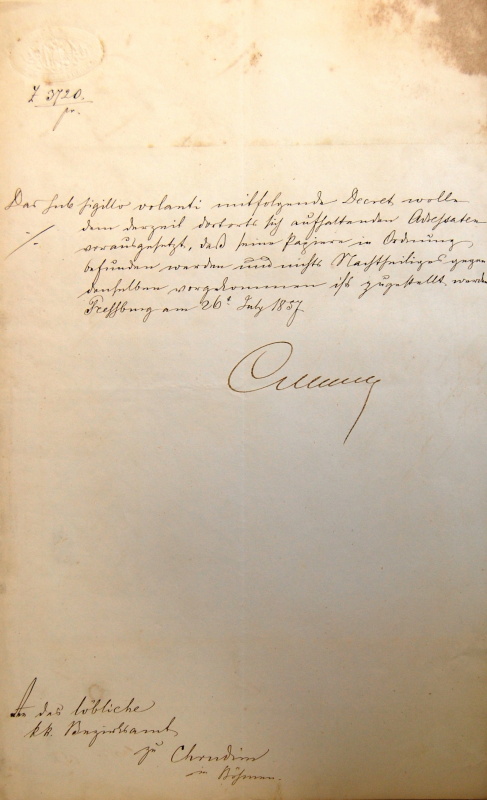 Z 3720.
pr.
Das sub sigillo volanti mitfolgende Decret wolle
dem derzeit dortorts sich aufhaltenden Adressaten
./. vorausgesetzt, daß seine Papiere in Ordnung
befunden werden und nichts Nachtheiliges gegen
denselben vorgekommen ist zugestellt werden
Pressburg am 26t July 1857
An das löbliche
kk. Bezirksamt
zu Chrudim
in Böhmen.